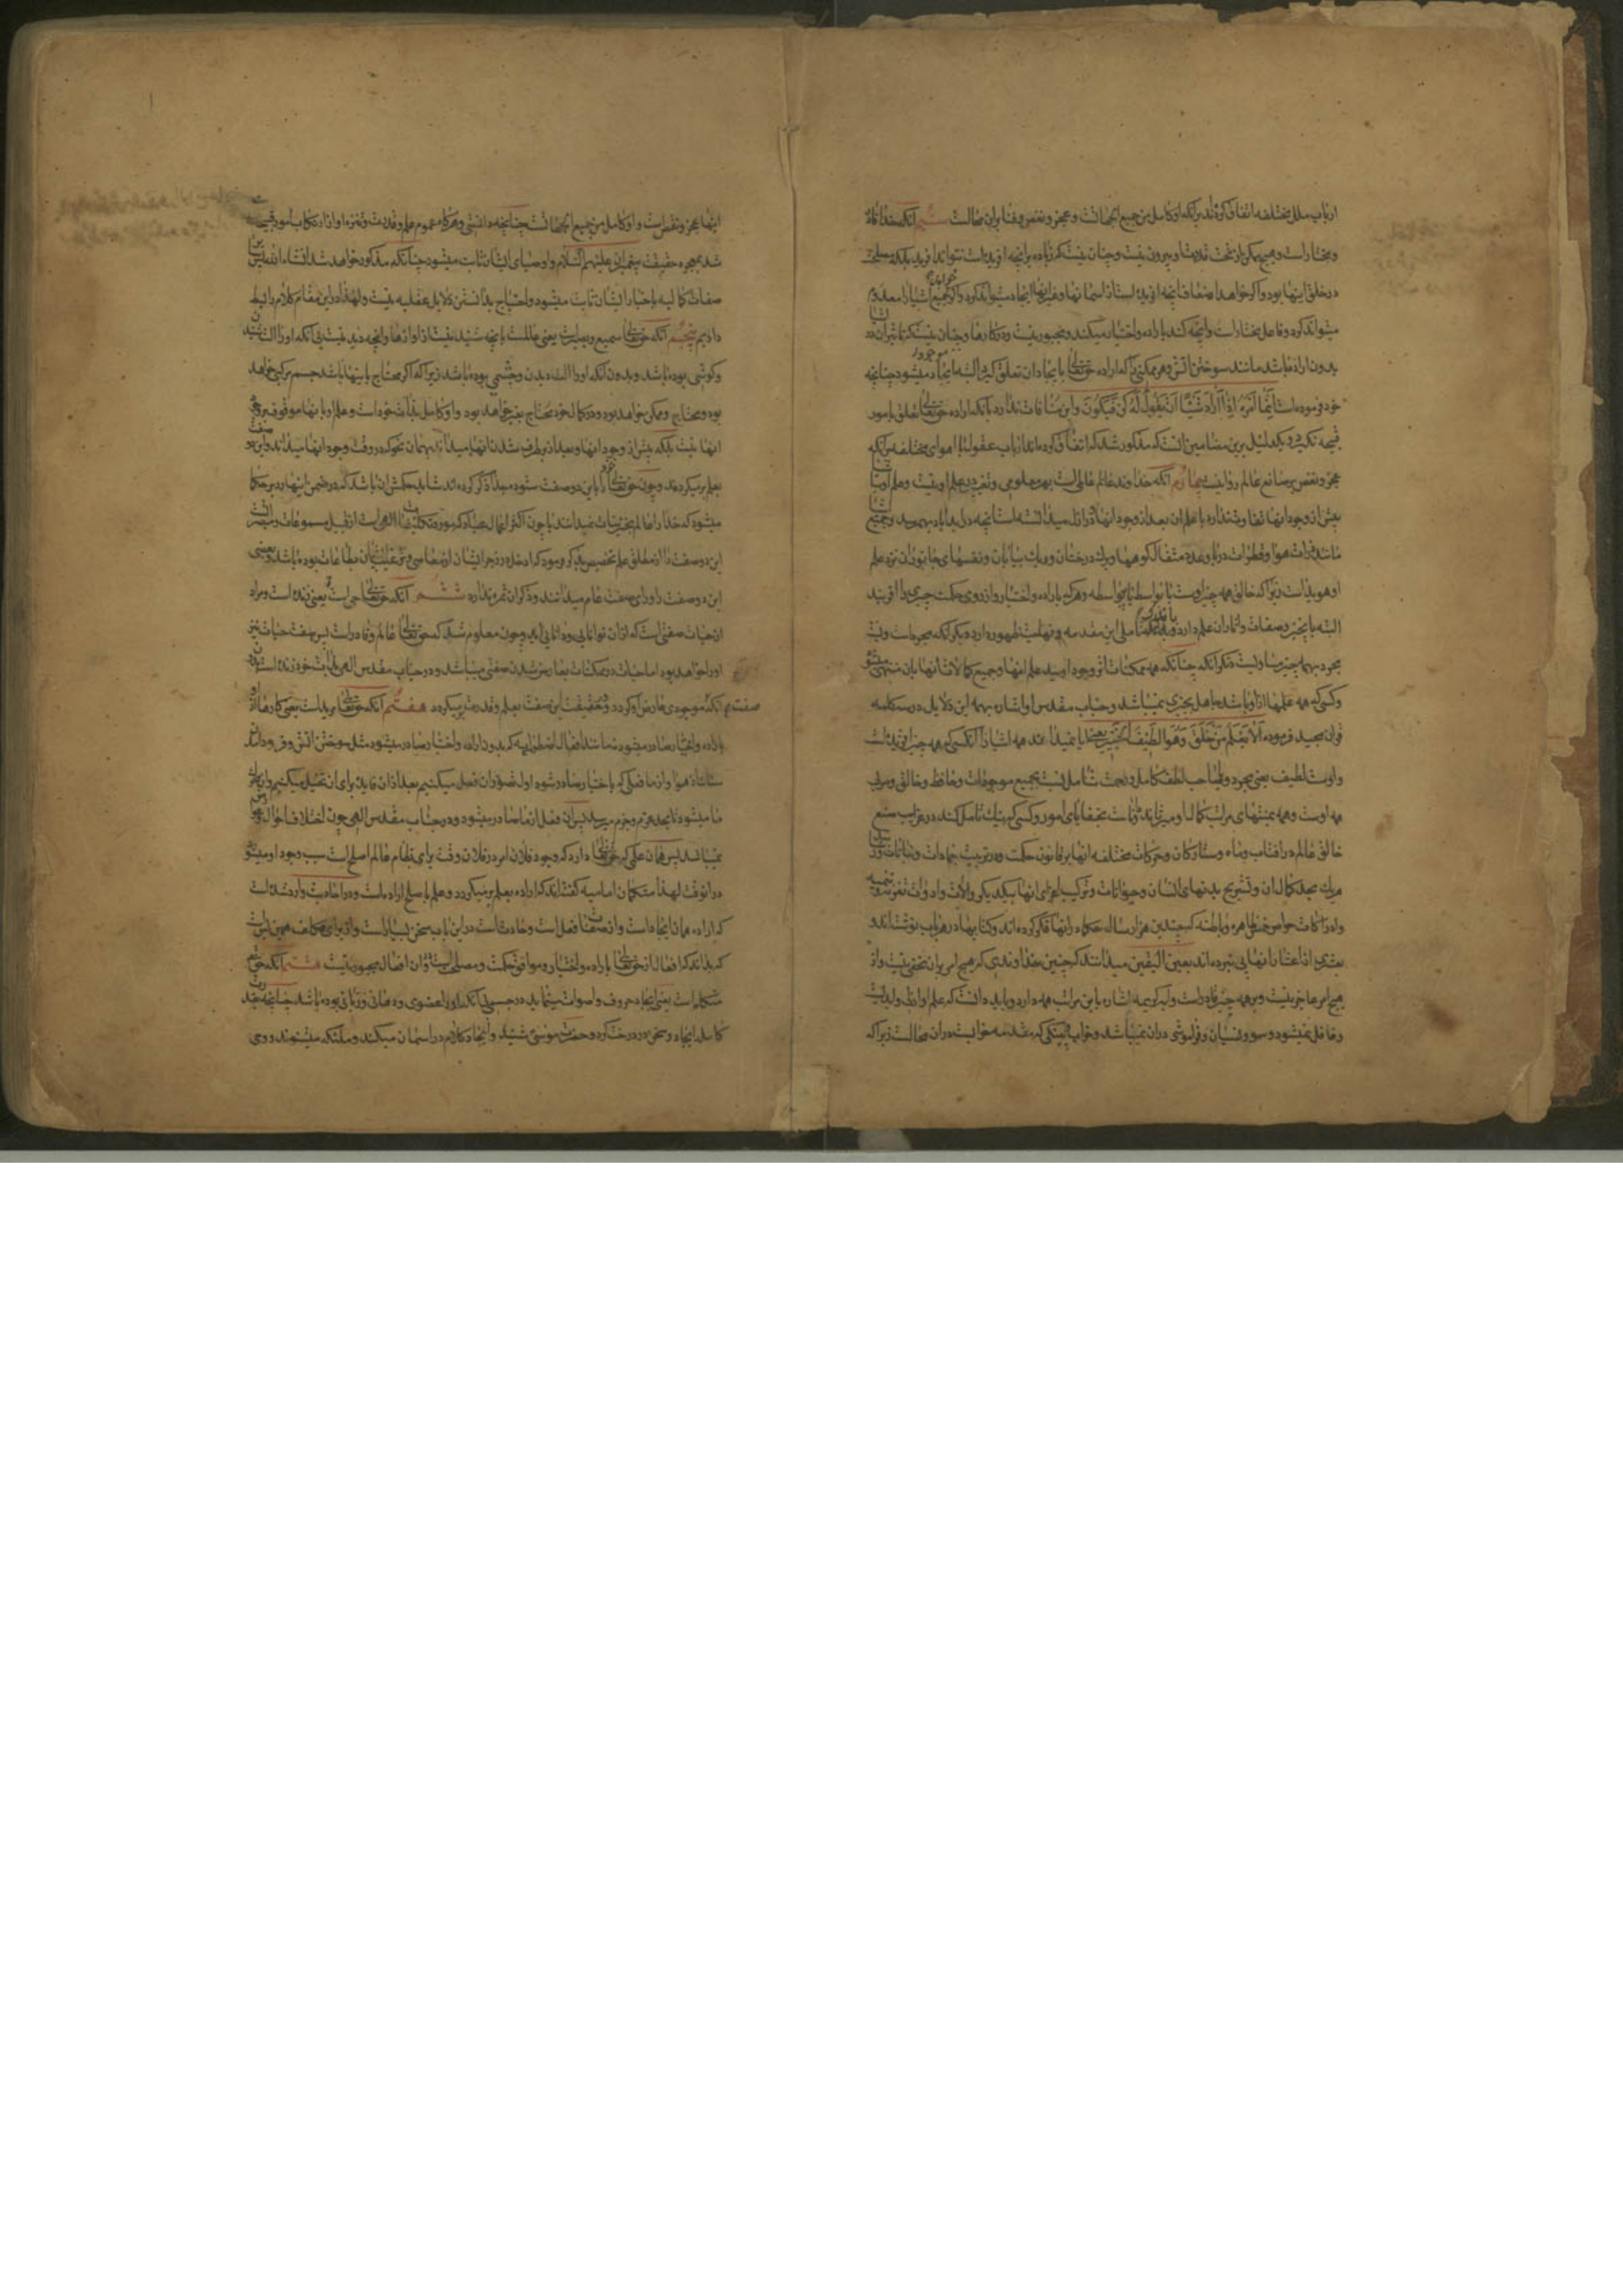 ارباب ملل مختلفه اتفاق کرده‌اند بر آنکه او کامل من جمیع الجهاتست و عجز و نقص و فنا بر او محالست سیم آنکه خدا قادر
و مختار است و هیچ ممکن از تحت قدرت او بیرون نیست و چنان نیست که زیاده بر آنچه آفریده است نتواند آفرید بلکه مصلحت
در خلق اینها بود و اگر خواهد اضعاف آنچه آفریده است از آسمانها و غیر آنها ایجاد میتواند کرد و اگر خواهد جمیع اشیا را معدوم
میتواند کرد و فاعل مختار است و آنچه کند باراده و اختیار میکند و مجبور نیست در کارها و چنان نیست که تاثیر آن در اشیا
بدون اراده باشد مانند سوختن آتش و هر ممکنی که اراده حق تعالی بایجاد آن تعلق گیرد البته موجود میشود چنانچه
خود فرموده است انما امره اذا اراد شیئا ان یقول له کن فیکون و این منافات ندارد با آنکه اراده حق تعالی تعلق بامور
قبیحه نگیرد و یک دلیل برین مضامین آنست که مذکور شد که اتفاق کرده‌اند ارباب عقول با اهوای مختلفه بر آنکه
عجز و نقص بر صانع عالم روا نیست چهارم آنکه خداوند عالم عالم است بهر معلومی و تغییر در علم او نیست و علم او باشیا
پیش از وجود آنها تفاوت ندارد با علم آن بعد از وجود آنها و در ازل میدانسته است آنچه در ابدالاباد بهم رسد و جمیع اشیا
مانند ذرات هوا و قطرات دریا و عدد مثقال کوهها و برگ درختان و ریگ بیابان و نفسهای جانوران نزد علم
او هویداست زیرا که خالق همه چیز اوست با واسطه یا بیواسطه و هر که باراده و اختیار و از روی حکمت چیزی را آفریند
البته بآن چیز و صفات و آثار آن علم دارد و باندک تاملی این مقدمه نهایت ظهور دارد دیگر آنکه مجرد است و نسبت
مجرد بهمه چیز مساویست دیگر آنکه چنانکه همه ممکنات اثر وجود اویند علم آنها و جمیع کمالات آنها باو منتهی میشود
و کسی که همه علمها از او باشد جاهل بچیزی نمیباشد و جناب مقدس او اشاره بهمه این دلایل در سه کلمه
قرآن مجید فرموده الا یعلم من خلق و هو اللطیف الخبیر یعنی آیا نمیداند همه اشیا را آنکسی که همه چیز آفریده است
و اوست لطیف یعنی مجرد و صاحب لطف کامل و رحمت شامل نسبت بجمیع موجودات و حافظ و خالق و مربی
همه اوست و همه بمنتهای مراتب کمال او میرساند و داناست بخفایای امور و کسی که نیک تامل کند در غرایب صنع
خالق عالم در آفتاب و ماه و ستارگان و حرکات مختلفه آنها بر قانون حکمت و در تربیت جمادات و نباتات و رسانیدن
هر یک بحد کمال آن و تشریح بدنهای انسان و حیوانات و ترکیب اجزای آنها بیکدیگر و آلات و ادوات تغذیه و تنمیه
و ادراکات حواس ظاهره و باطنه که چندین هزار سال حکما در آنها فکر کرده‌اند و کتابها در هر باب نوشته‌اند و
بعشری از اعشار آنها پی نبرده‌اند بعین الیقین میداند که چنین خداوندی که هیچ امر بر او مخفی نیست و از
هیچ امر عاجز نیست و بر همه چیز قادر است و آیه کریمه اشاره باین مراتب همه دارد و باید دانست که علم او ازلی و ابدیست
و غافل نمیشود و سهو و نسیان و فراموشی در او نمیباشد و خواب و پینکی که مقدمه خوابست در او محالست زیرا که
اینها عجز و نقص است و او کامل من جمیع الجهاتست چنانچه دانستی و هرگاه عموم علم و قدرت و تنزه او از ارتکاب امور قبیحه ثابت
شد بمعجزه حقیقت پیغمبران علیهم السلام و اوصیای ایشان ثابت میشود چنانکه مذکور خواهد شد انشاء الله پس سایر
صفات کمالیه باخبار ایشان ثابت میشود و احتیاج بدانستن دلایل عقلیه نیست و لهذا در این مقام کلام را بسط
دادیم پنجم آنکه حق تعالی سمیع و بصیر است یعنی عالمست بآنچه شنیدنیست از آوازها و آنچه دیدنیست بی آنکه او را آلت شنیدن
و گوشی بوده باشد و بدون آنکه او را آلت دیدن و چشمی بوده باشد زیرا که اگر محتاج باینها باشد جسم مرکبی خواهد
بود و محتاج و ممکن خواهد بود و در کمال خود محتاج بغیر خواهد بود و او کامل بذات خود است و علم او باینها موقوف بر وجود
آنها نیست بلکه پیش از وجود آنها و بعد از برطرف شدن آنها میداند بهمان نحو که در وقت وجود آنها میداند و این دو صفت
بعلم بر میگردند و چون حق تعالی خود را باین دو صفت ستوده جدا ذکر کرده‌اند شاید حکمتش آن باشد که در ضمن اینها رد بر حکما
میشود که خدا را عالم بجزئیات نمیدانند یا چون اکثر اعمال عباد که مورد تکلیفات الهی است از قبیل مسموعات و مبصراتست
این دو صفت را از مطلق علم تخصیص بذکر فرمود که ادخل در زجر ایشان از معاصی و ترغیب ایشان بطاعات بوده باشد و بعضی
این دو صفت را ورای صفت علم میدانند و ذکر آن ثمره ندارد ششم آنکه حق تعالی حی است یعنی زنده است و مراد
از حیات صفتی است که از آن توانایی و دانایی آید و چون معلوم شد که حق تعالی عالم و قادر است پس صفت حیات نیز
او را خواهد بود اما حیات در ممکنات بعارض شدن صفتی میباشد و در جناب مقدس الهی بذات خود زنده است بدون
آنکه صفت موجودی عارض او گردد و حقیقت این صفت بعلم و قدرت بر میگردد هفتم آنکه حق تعالی مرید است یعنی کارها از او
باراده و اختیار صادر میشود نه مانند افعال اضطراریه که بدون اراده و اختیار صادر میشود مثل سوختن آتش و فرود آمدن
سنگ از هوا و از ما فعلی که باختیار صادر شود اول تصور آن فعل میکنیم بعد از آن فایده برای آن تخیل میکنیم و
تا میشود تا بحد عزم و جزم میرسد پس آن فعل از ما صادر میشود و در جناب مقدس الهی چون اختلاف احوال
نمیباشد پس همان علمی که حق تعالی دارد که وجود فلان امر در فلان وقت برای نظام عالم اصلح است سبب وجود او میشود
در آنوقت لهذا متکلمان امامیه گفته‌اند که اراده بعلم بر میگردد و علم باصلح اراده است و در احادیث وارد شده است
که اراده همان ایجاد است و از صفات فعل است و حادث است در این باب سخن بسیار است و از برای مکلف همین بس است
که بداند که افعال از حق تعالی باراده و اختیار و موافق حکمت و مصلحت است و در آن افعال مجبور نیست هشتم آنکه حق تعالی
متکلم است یعنی ایجاد حروف و اصوات مینماید در جسمی بی آنکه او را عضوی و دهانی و زبانی بوده باشد چنانچه بقدرت
کامله ایجاد سخن در درخت کرد و حضرت موسی شنید و ایجاد کلام در آسمان میکند و ملئکه میشنوند و وحی